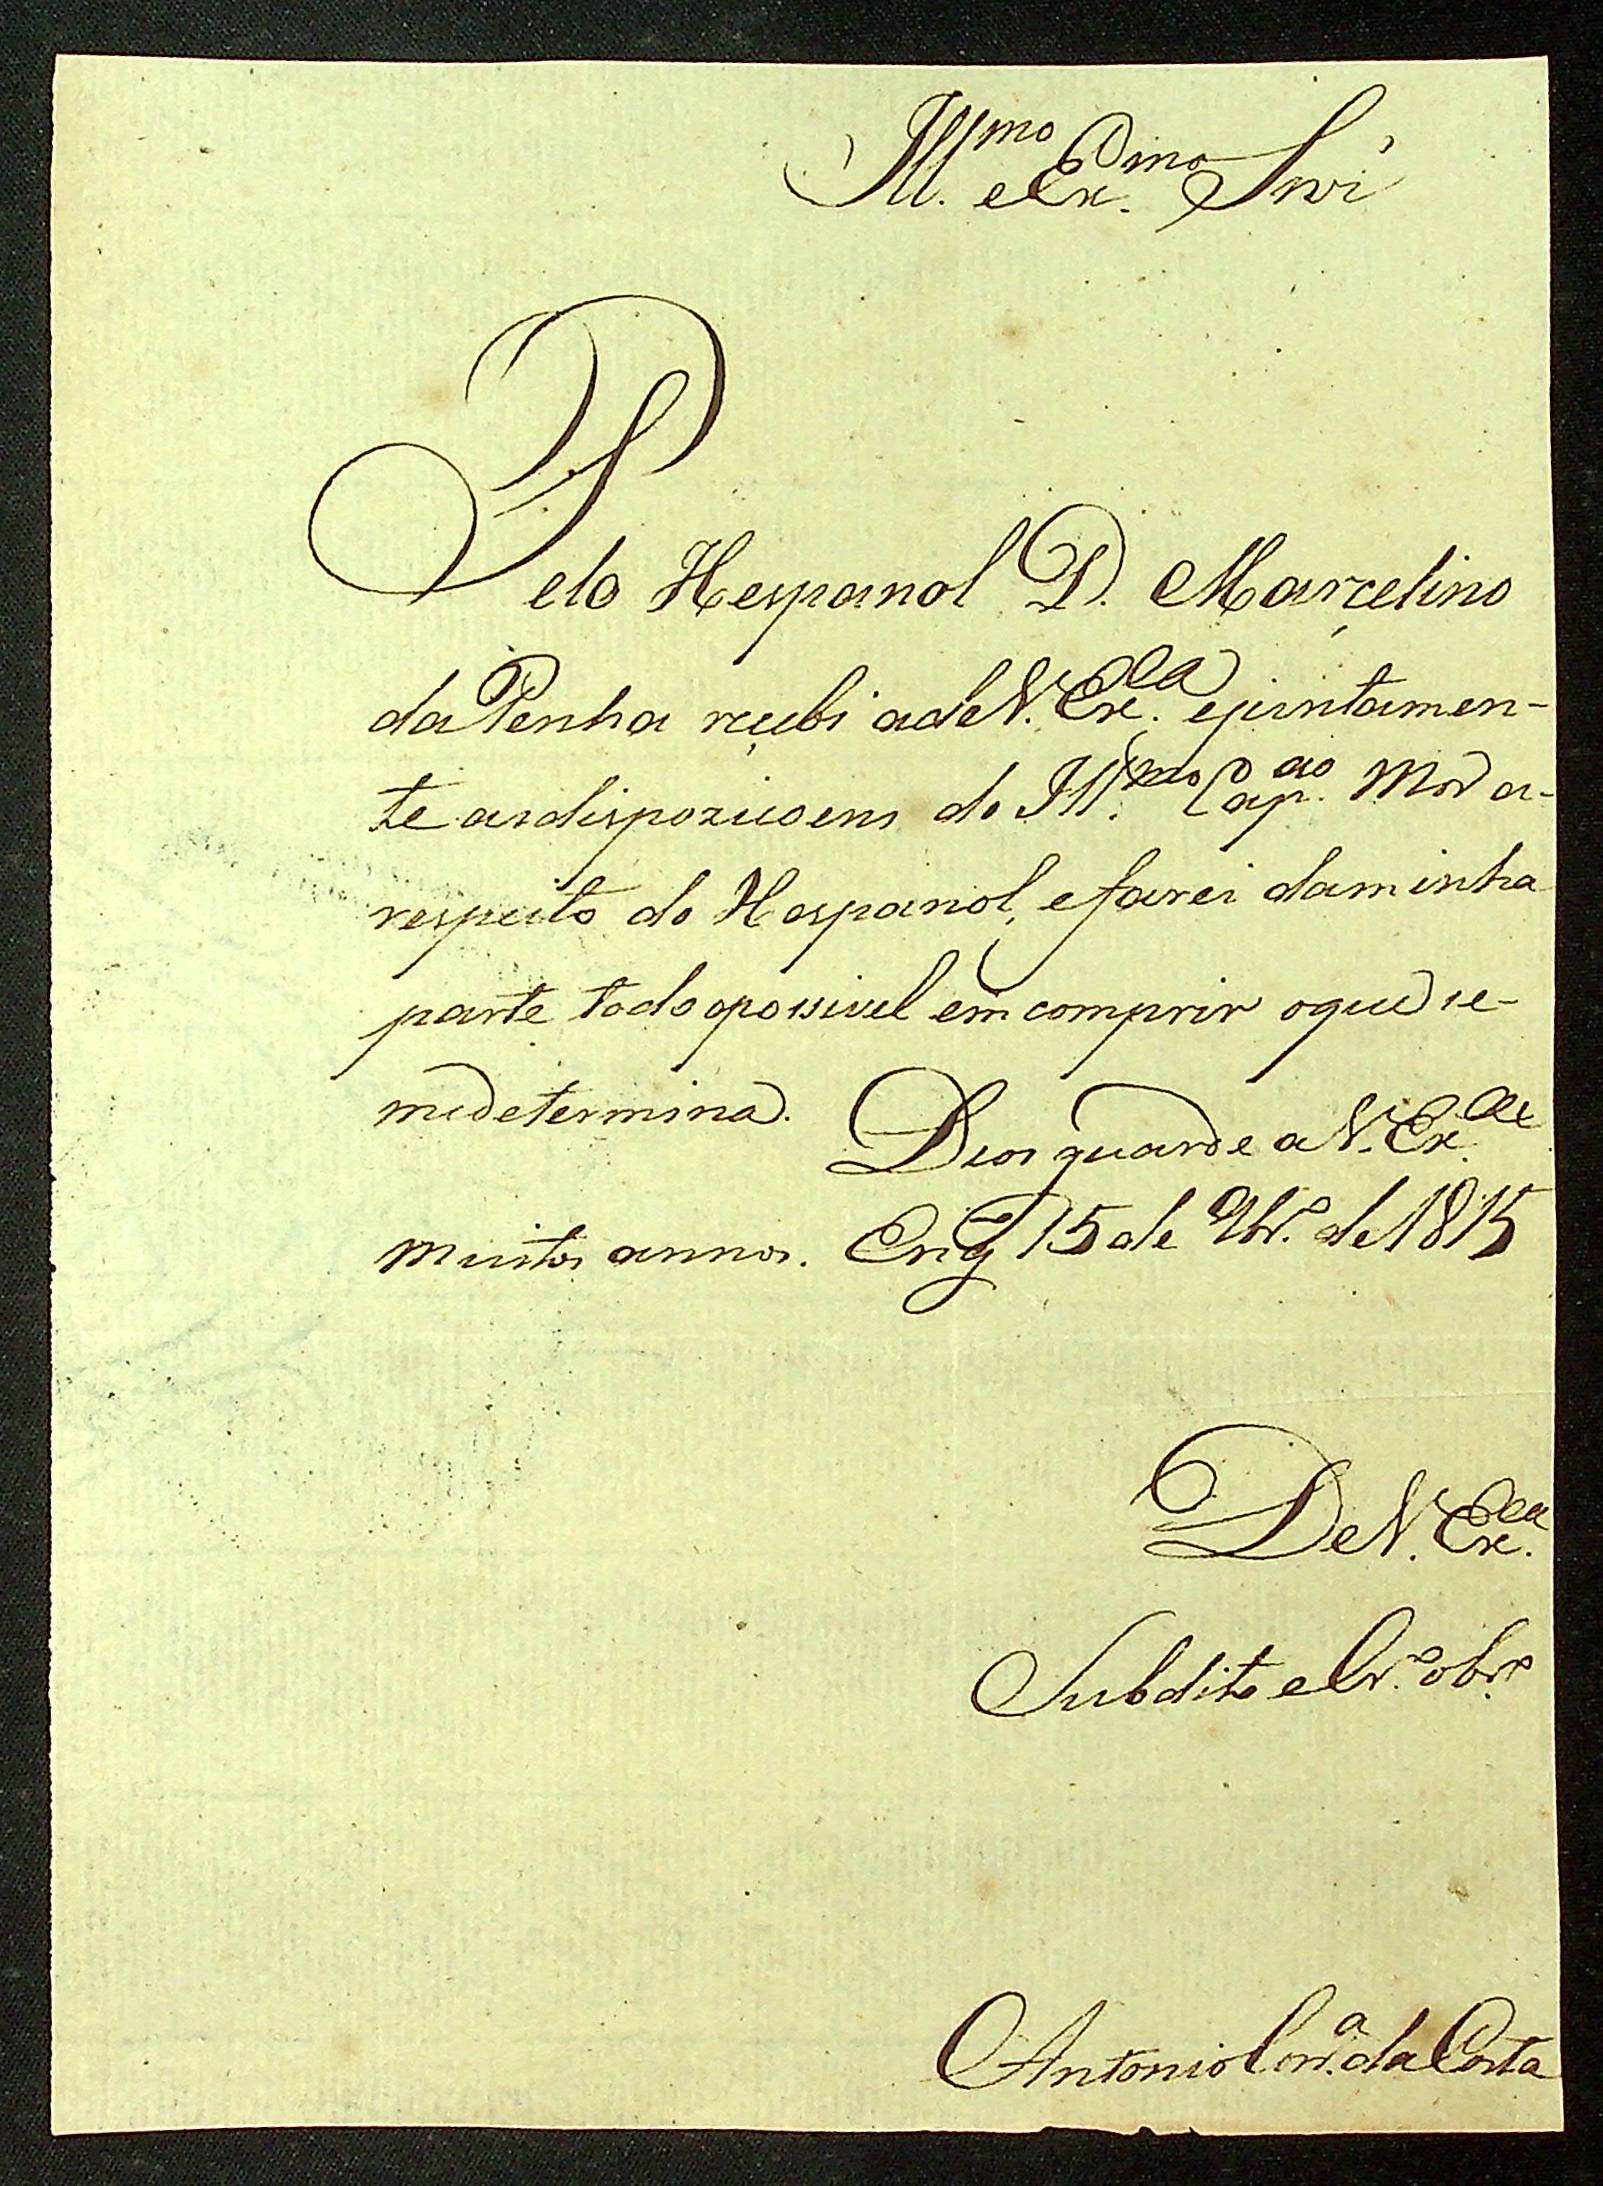 Ill.mo e Ex.mo Snr
Pelo Hespanol D. Marçelino
da Penha reçubi a de V. Ex.ca e juntamen-
te as dispozicoens do Ill.mo Cap.ao Mor a-
respeito do Hespanol, e farei da minha
parte todo o possivel em comprir o que se-
me determina. Deos guarde a V. Ex.ca
muitos annos. 15 de 9br.o de 1815
De V. Ex.ca
Subdito e Cr.o obr.o
Antonio Corr.a da Costa